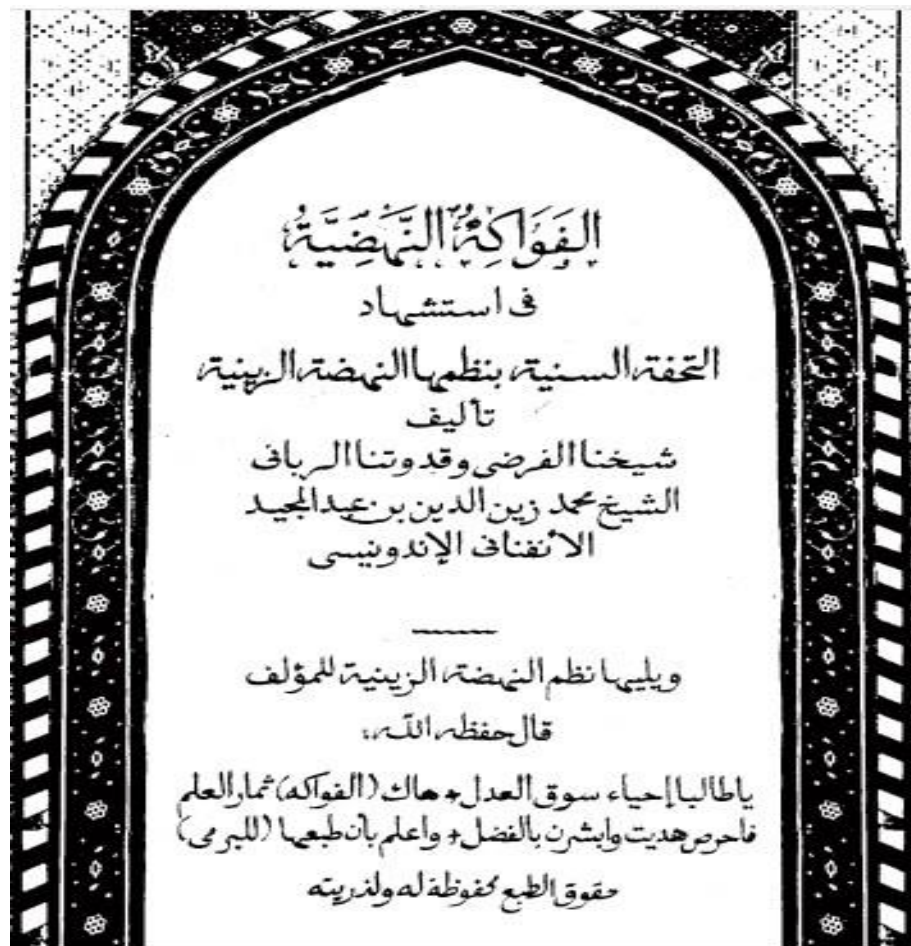 الفَوَاكِهُ النَّهْضِيَّةُ
فى استشهاد
التحفة السنية بنظمها النهضة الزينية
تأليف
شيخنا الفرضى وقدوتنا الربانى
الشيخ محمد زين الدين بن عبدالمجيد
الأنفنانى الإندونيسى
ويليها نظم النهضة الزينية للمؤلف
قال حفظه الله:
ياطالبا إحياء سوق العدل + هاك (الفواكه) ثمار العلم
فاحرص هديت وابشرن بالفضل + واعلم بأن طبعها (للبرمى)
حقوق الطبع محفوظة له ولذريته